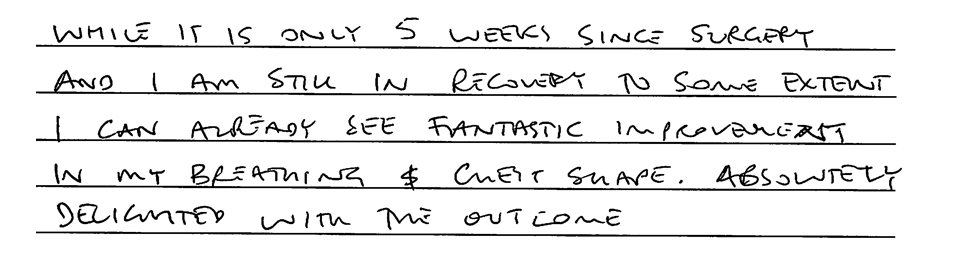 WHILE IT IS ONLY 5 WEEKS SINCE SURGERY
AND I AM STILL IN RECOVERY TO SOME EXTENT
I CAN ALREADY SEE FANTASTIC IMPROVEMENT
IN MY BREATHING & CHEST SHAPE. ABSOLUTELY
DELIGHTED WITH THE OUTCOME